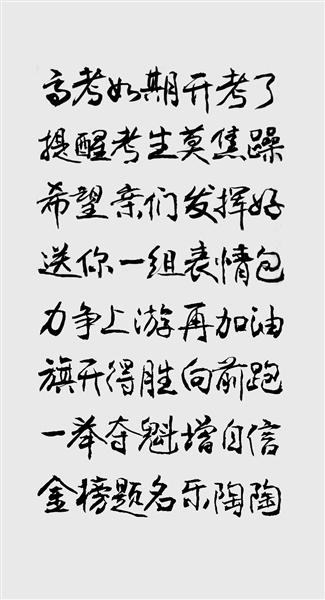 高考如期开考了
提醒考生莫焦躁
希望亲们发挥好
送你一组表情包
力争上游再加油
旗开得胜向前跑
一举夺魁增自信
金榜题名乐陶陶